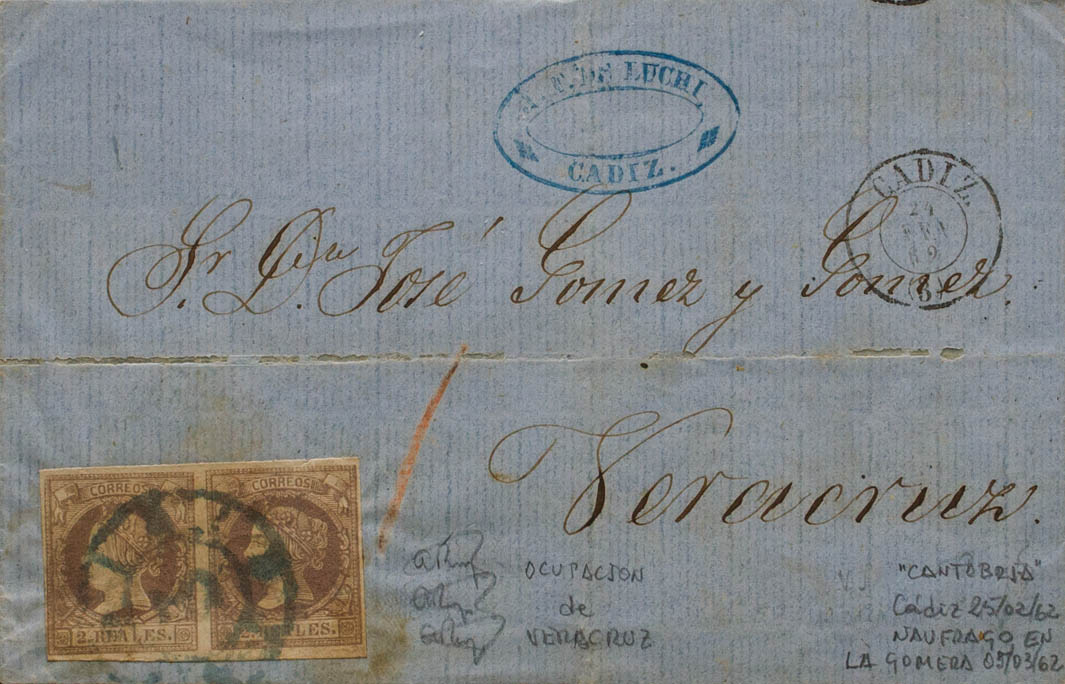 DE LUCHI,
CADIZ.
CADIZ.
24
FEB
62
Sr. Dn. José Gomez y Gomez.
Veracruz.
CORREOS
CORREOS
2.REALES.
OCUPACION
de
VERACRUZ
"CANTABRIA"
Cádiz 25/02/62
NAUFRAGO EN
LA GOMERA 05/03/62